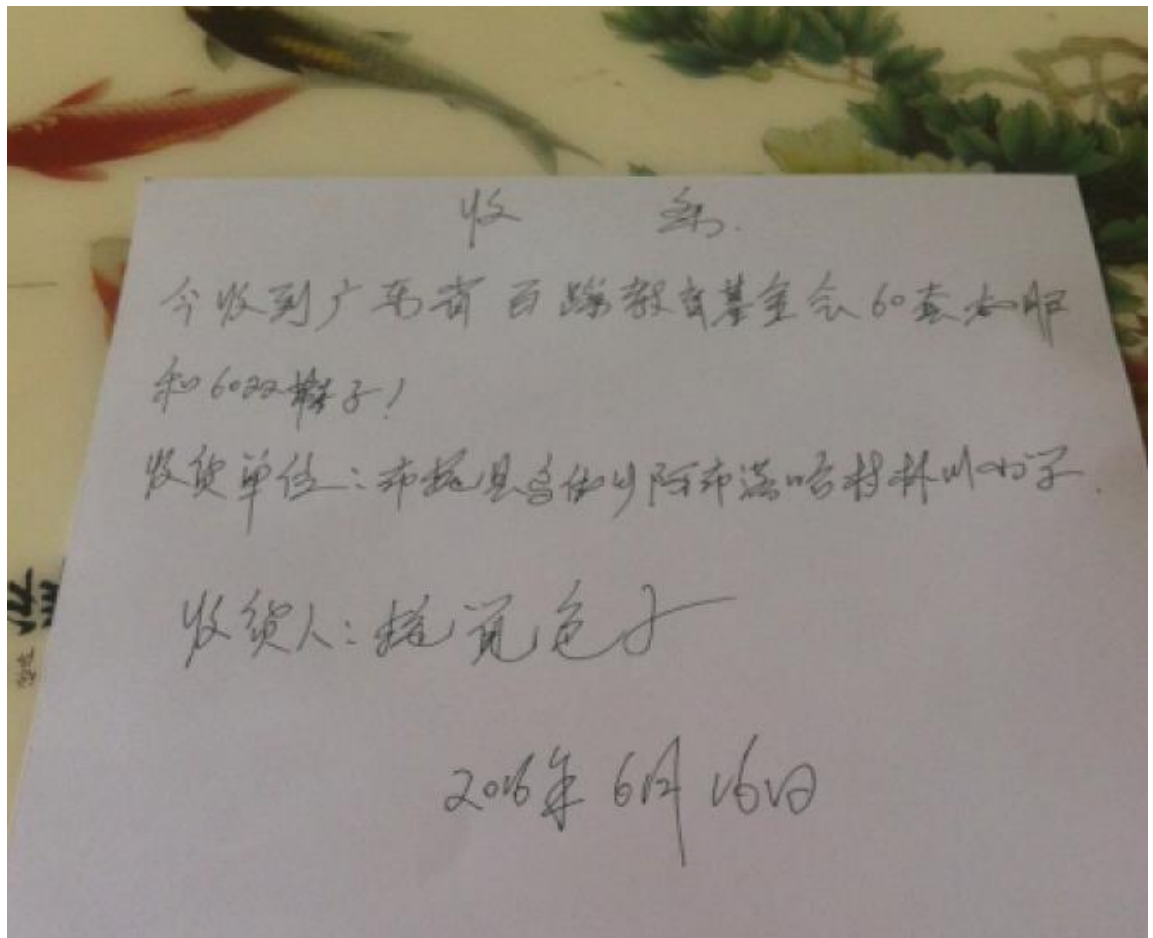 收 条
今收到广东省百蹄教育基金会60套衣服
和60双鞋子！
收货单位：布拖县乌依乡阿布洛哈村林川小学
收货人：
2016年6月16日